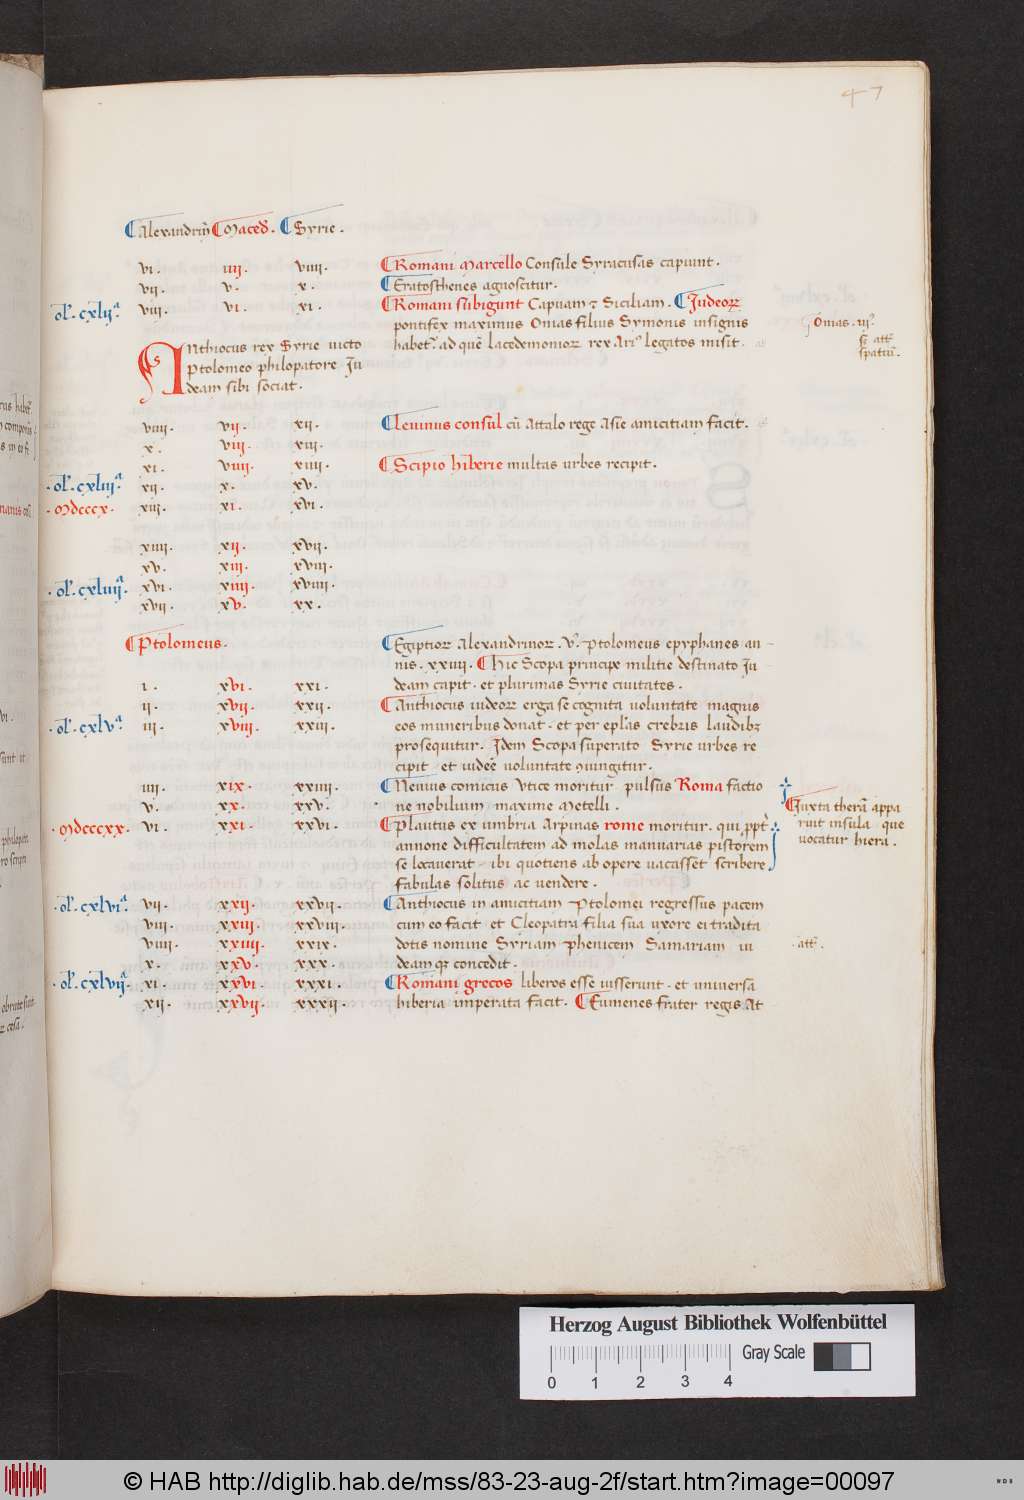 47
Alexandrinͫ Maced̅. Syrie.
vi. iiij. viiii. Romani Marcello Consule Syracusas capiunt.
vii. v. x. Eratosthenes agnoscitur.
ol̅. cxlijª. viii. vi. xi. Romani subigunt Capuam ⁊ Siciliam. Judeoꝝ
pontifex maximus Onias filius Symonis insignis
Onias. iijˢ.
habet᷑. ad quē lacedemonioꝝ rex Ariˢ legatos misit.
Anthiocus rex Syrie victo
Ptolomeo philopatore Ju
deam sibi sociat.
viiii. vii. xii. Levinus consul cū Attalo rege Asie amicitiam facit.
x. viii. xiii.
xi. viiii. xiiii. Scipio hiberie multas urbes recipit.
ol̅. cxliijª. xii. x. xv.
Mdcccx. xiii. xi. xvi.
xiiii. xii. xvii.
xv. xiii. xviii.
ol̅. cxliiijª. xvi. xiiii. xviiii.
xvii. xv. xx.
Ptolomeus. Egiptioꝝ Alexandrinoꝝ. vˢ. Ptolomeus epyphanes an-
nis. xxiiij. Hic Scopa principe militie destinato Ju
i. xvi. xxi. deam capit. et plurimas Syrie civitates.
ii. xvii. xxii. Anthiocus iudeoꝝ erga se cognita voluntate magnis
ol̅. cxlvª. iii. xviii. xxiii. eos muneribus donat. et per ep̅las crebris laudibꝫ
prosequitur. Idem Scopa superato Syrie urbes re
cipit. et iudeē voluntate ꝯiungitur.
iiii. xix. xxiiii. Nevius comicus Utice moritur pulsus Roma factio
v. xx. xxv. ne nobilium maxime Metelli.
Juxta therā appa
ruit insula que
vocatur hiera.
Mdcccxx. vi. xxi. xxvi. Plautus ex umbria Arpinas rome moritur. qui ꝓpt᷑
annone difficultatem ad molas manuarias pistorem
se locaverat. ibi quotiens ab opere vacasset scribere
fabulas solitus ac vendere.
ol̅. cxlviª. vii. xxii. xxvii. Anthiocus in amicitiam Ptolomei regressus pacem
viii. xxiii. xxviii. cum eo facit et Cleopatra filia sua uxore ei tradita
viiii. xxiiii. xxix. dotis nomine Syriam Phenicem Samariam iu
x. xxv. xxx. deam qꝫ concedit.
ol̅. cxlvijª. xi. xxvi. xxxi. Romani grecos liberos esse iusserunt. et universa
xii. xxvii. xxxii. hiberia imperata facit. Eumenes frater regis At
Herzog August Bibliothek Wolfenbüttel
Gray Scale
0 1 2 3 4
© HAB http://diglib.hab.de/mss/83-23-aug-2f/start.htm?image=00097